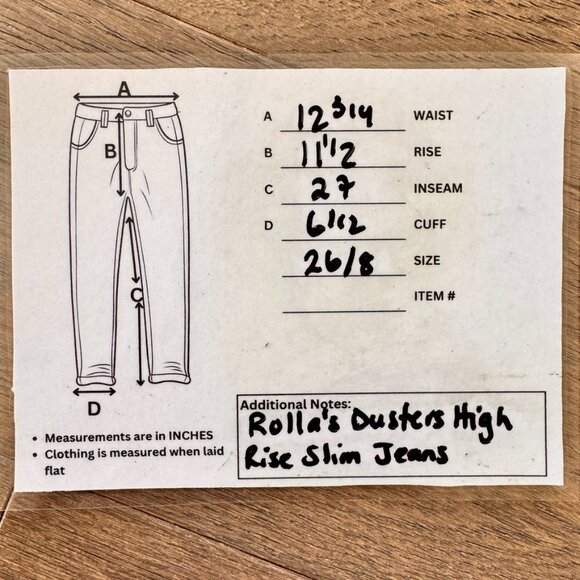 A
B
C
D
A 12 3/4 WAIST
B 11 1/2 RISE
C 27 INSEAM
D 6 1/2 CUFF
26/8 SIZE
ITEM #
• Measurements are in INCHES
• Clothing is measured when laid
flat
Additional Notes:
Rolla's Dusters High
Rise Slim Jeans